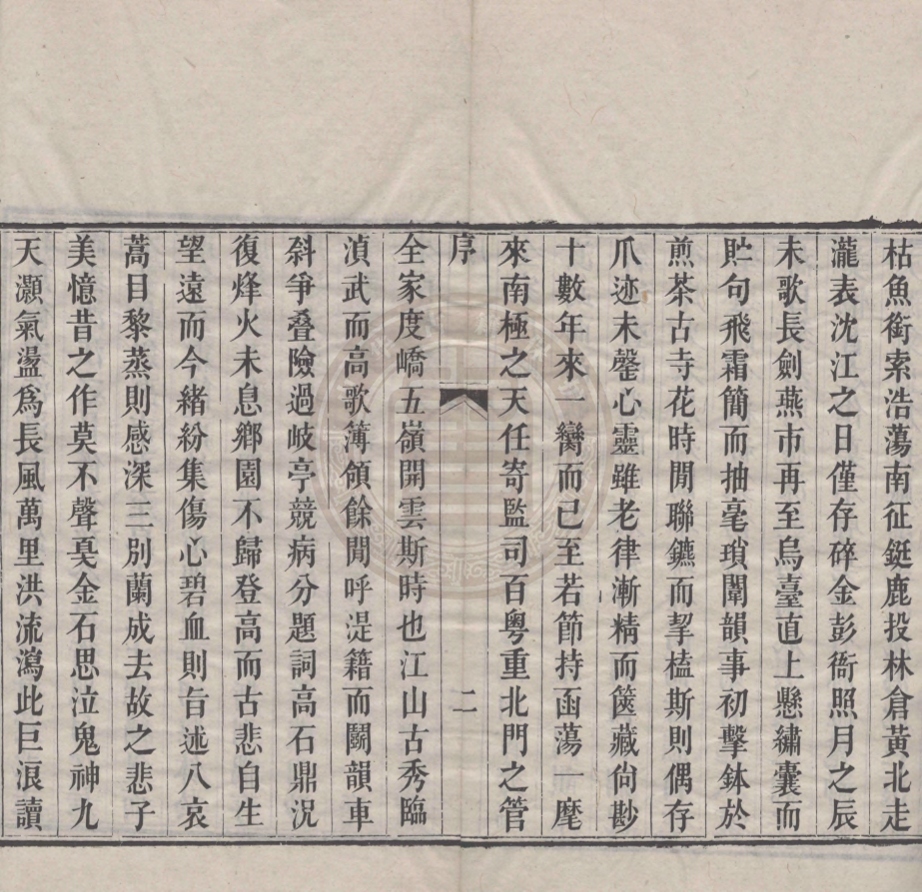 枯魚銜索浩蕩南征鋌鹿投林倉黃北走
瀧表沈江之日僅存碎金彭衙照月之辰
未歌長劍燕市再至烏臺直上懸繡囊而
貯句飛霜簡而抽毫瑣闈韻事初擊鉢於
煎茶古寺花時閒聯鑣而挈榼斯則偶存
爪迹未罄心靈雖老律漸精而篋藏尙尠
十數年來一臠而已至若節持函蕩一麾
來南極之天任寄監司百粵重北門之管
序
二
全家度嶠五嶺開雲斯時也江山古秀臨
湞武而高歌簿領餘閒呼湜籍而鬭韻車
斜爭叠險過岐亭競病分題詞高石鼎況
復烽火未息鄉園不歸登高而古悲自生
望遠而今緒紛集傷心碧血則旨述八哀
蒿目黎蒸則感深三別蘭成去故之悲子
美憶昔之作莫不聲戛金石思泣鬼神九
天灝氣盪爲長風萬里洪流瀉此巨浪讀